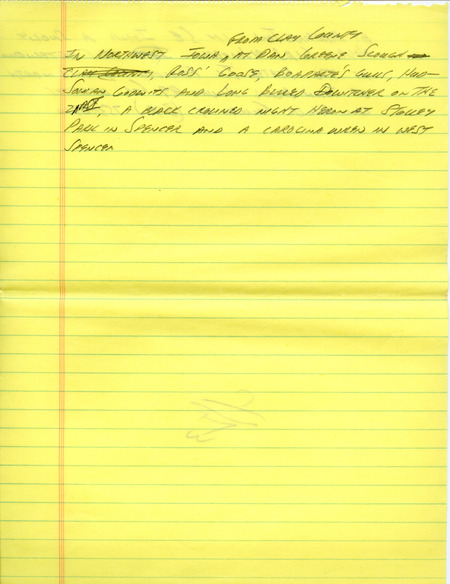 From Clay County
In Northwest Iowa, at Dan Greene Slough
Ross' Goose, Bonaparte's Gulls, Hud-
sonian Godwits and Long Billed Dowitcher on the
, a Black Crowned Night Heron at Stolley
Park in Spencer and a Carolina Wren in West
Spencer